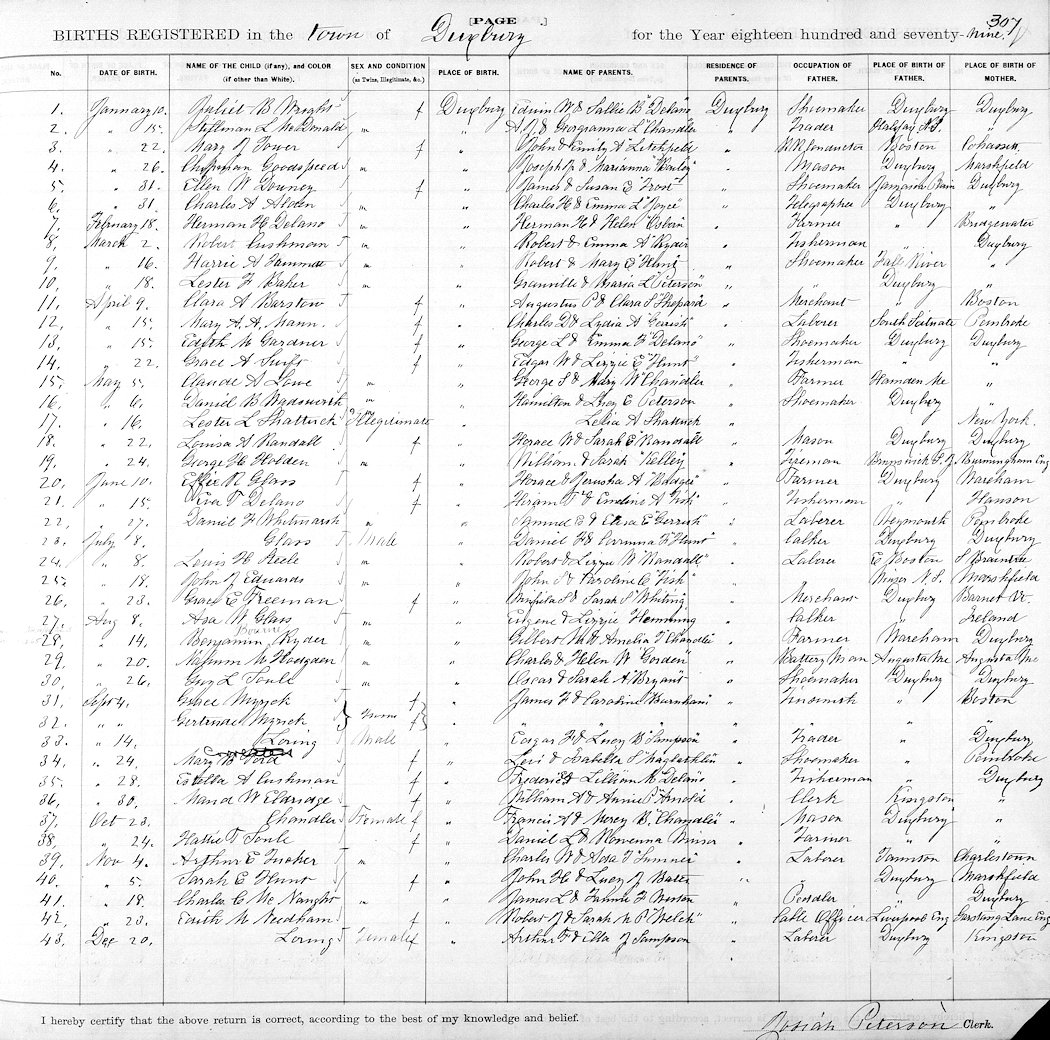 [PAGE .] 307
BIRTHS REGISTERED in the town of Duxbury for the Year eighteen hundred and seventy-nine.
No. DATE OF BIRTH. NAME OF THE CHILD (if any), and COLOR (if other than White). SEX AND CONDITION (as Twins, Illegitimate, &c.) PLACE OF BIRTH. NAME OF PARENTS. RESIDENCE OF PARENTS. OCCUPATION OF FATHER. PLACE OF BIRTH OF FATHER. PLACE OF BIRTH OF MOTHER.
1. January 10. B. Wright f Duxbury Edwin W & Sallie B "Delano" Duxbury Shoemaker Duxbury Duxbury
2. " 15. Stillman L McDonald m " & Georgianna L "Chandler" " Trader Halifax N.S. "
3. " 22. Mary J Tower f " John & Emily A "Litchfield" " R.R. Conductor Boston Cohasset
4. " 26. Chapman Goodspeed m " Joseph & Marianna " " Mason Duxbury Marshfield
5. " 31. Ellen W Downey f " James & Susan E "Frost" " Shoemaker Jamaica Plain Duxbury
6. " 31. Charles A Alden m " Charles H & Emma L "Joyce" " Telegrapher Duxbury "
7. February 18. Herman H Delano m " Herman H & Helen "Osborn" " Farmer " Bridgewater
8. March 2. Robert Cushman m " Robert & Emma A "Ryder" " Fisherman " Duxbury
9. " 16. Harrie A Hammett m " Robert & Mary E "Hunt" " Shoemaker Fall River "
10. " 18. Lester F Baker m " Granville & Maria L "Peterson" " " Duxbury "
11. April 9. Clara A Barstow f " Augustus P & Clara S "Shepard" " Merchant " Boston
12. " 15. Mary A. A. Mann. f " Charles D & Lydia A "Gerrish" " Laborer South Scituate Pembroke
13. " 15. Edith W Gardner f " George L & Emma F "Delano" " Shoemaker Duxbury Duxbury
14. " 22. Grace A Swift f " Edgar W & Lizzie E "Hunt" " Fisherman " "
15. May 5. Claude A Lowe m " George S & Mary W "Chandler" " Farmer Hamden Me "
16. " 6. Daniel B Wadsworth m " Hamilton & Lucy E Peterson " Shoemaker Duxbury "
17. " 16. Lester L Shattuck m Illegitimate " Lelia A Shattuck " New York.
18. " 22. Louisa A Randall f " Horace W & Sarah E "Randall" " Mason Duxbury Duxbury
19. " 24. George H Holden m " William & Sarah "Kelley" " Fireman Brunswick N.J. Burmingham Eng
20. June 10. Effie R Glass f " Horace & Jerusha A "Hodges" " Farmer Duxbury Wareham
21. " 15. Eva T Delano f " Hiram T & Emeline A "Fish" " Fisherman " Hanson
22. " 27. Daniel F Whitmarsh m " Samuel E & Eliza E "Gerrish" " Laborer Weymouth Pembroke
23. July 8. Glass Male " Daniel H & Corrinna F "Hunt" " Calker Duxbury Duxbury
24. " 8. Louis H Steele m " Robert & Lizzie W "Randall" " Laborer E Boston S Braintree
25. " 18. John J Edwards m " John S & Caroline C "Fish" " " Windsor N.S. Marshfield
26. " 23. Grace E Freeman f " Winfield S & Sarah S "Whiting" " Merchant Duxbury Barnet Vt.
27. Aug 8. Asa W Glass m " Eugene & Lizzie "Hemming" " Calker " Ireland
28. " 14. Benjamin Ryder m " Gilbert M & Amelia T "Chandler" " Farmer Wareham Duxbury
29. " 20. Nahum W Hodgdon m " Charles & Helen W "Gorden" " Battery Man Augusta Me Augusta Me
30. " 26. Guy L Soule m " Oscar & Sarah A "Bryant" " Shoemaker Duxbury Duxbury
31. Sept 4. Grace Myrick f " James F & Caroline "Burnham" " Tinsmith " Boston
32. " " Gertrude Myrick Twins f " " " " " " "
33. " 14. Loring Male " Edgar F & Lucy B "Sampson" " Trader " Duxbury
34. " 24. Mary B Ford f " Levi & Isabella "Maglathlin" " Shoemaker " Pembroke
35. " 28. Estella A Cushman f " Frederic & Lillian M Delano " Fisherman " Duxbury
36. " 30. Maud W Eldridge f " William A & Annie P "Arnold" " Clerk Kingston "
37. Oct 23. Chandler Female f " Francis A & Mercy B. "Chandler" " Mason Duxbury "
38. " 24. Hattie T Soule f " Daniel L & Rowenna Winsor " Farmer " "
39. Nov 4. Arthur E Tucker m " Charles W & Rosa T "Sumner" " Laborer Taunton Charlestown
40. " 5. Sarah E Hunt f " John H & Lucy J Bates " " Duxbury Marshfield
41. " 18. Charles C McNaught m " James L & Fannie F Weston " Peddler " Duxbury
42. " 23. Edith M Needham f " Robert J & Sarah M P "Welch" " Cable Officer Liverpool Eng Garsting Lane Eng
43. Dec 20. Loring Female f " Arthur F & Ella J Sampson " Laborer Duxbury Kingston
I hereby certify that the above return is correct, according to the best of my knowledge and belief.
Josiah Peterson Clerk.